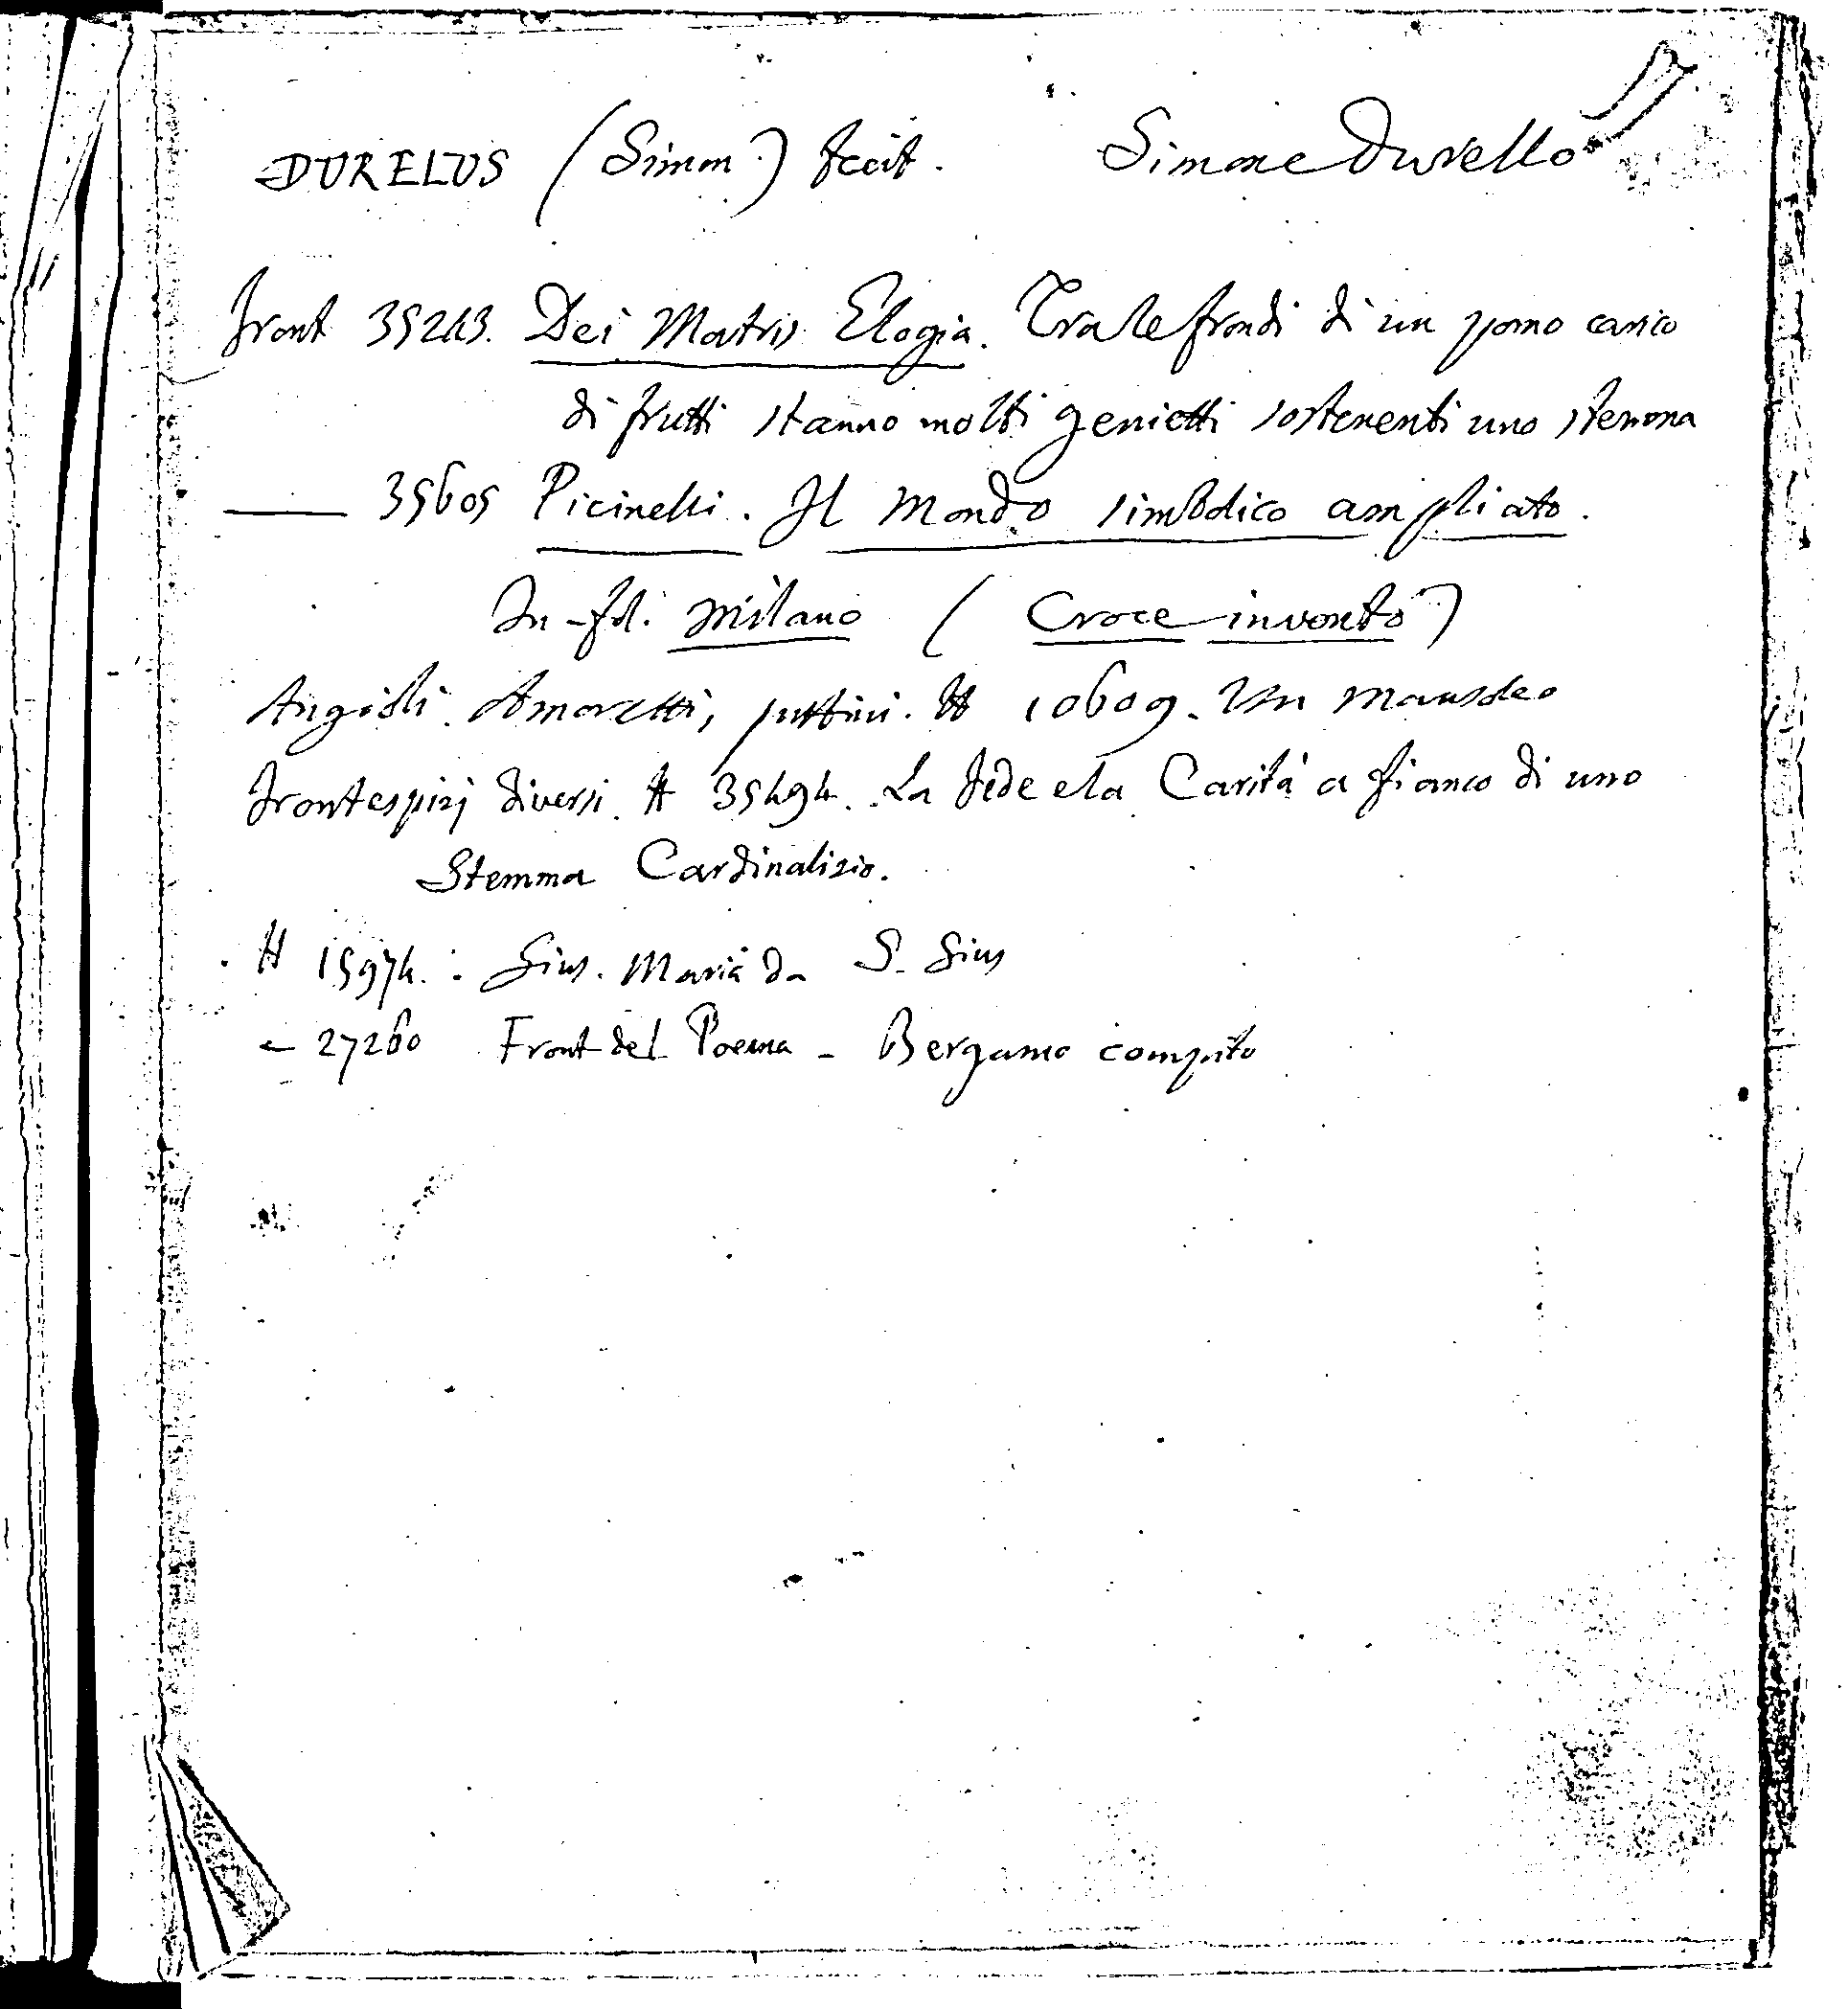 DURELUS (Simon.) fecit. Simone Durello 17
Front 35243. Dei Matris Elogia. Tra le frondi di un pomo carico
di frutti stanno molti genietti sostenenti uno stemma
—— 35605 Picinelli. Il Mondo simbolico ampliato.
In-fol. Milano (Croce inventò)
Angioli. Amoretti, puttini. # 10609. Un mausoleo
Frontespizj diversi. # 35494. La fede e la Carità a fianco di uno
Stemma Cardinalizio.
# 15974. Gius. Maria da S. Gius
- 27260 Front del Poema - Bergamo